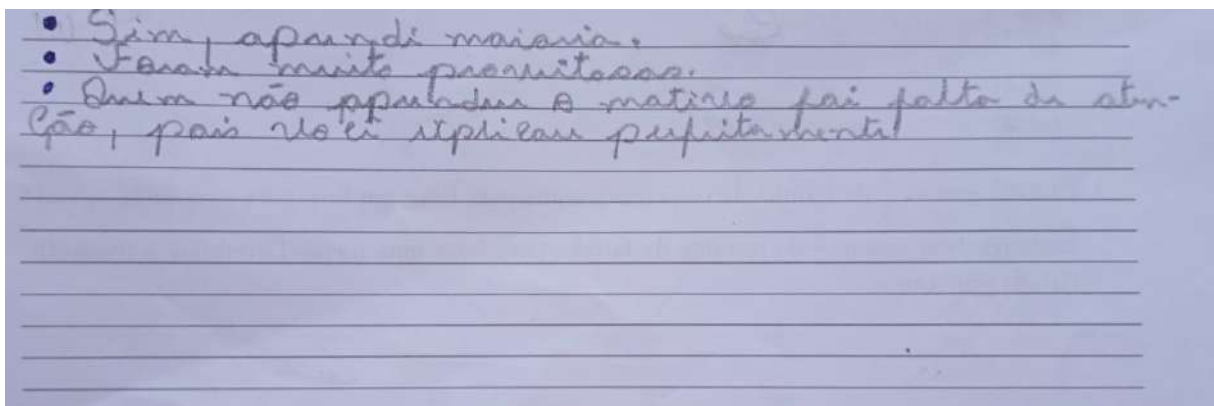 • Sim, aprendi maioria.
• Foram muito proveitosas.
• Quem não aprendeu a matéria foi falta de aten-
ção, pois você explicou perfeitamente!